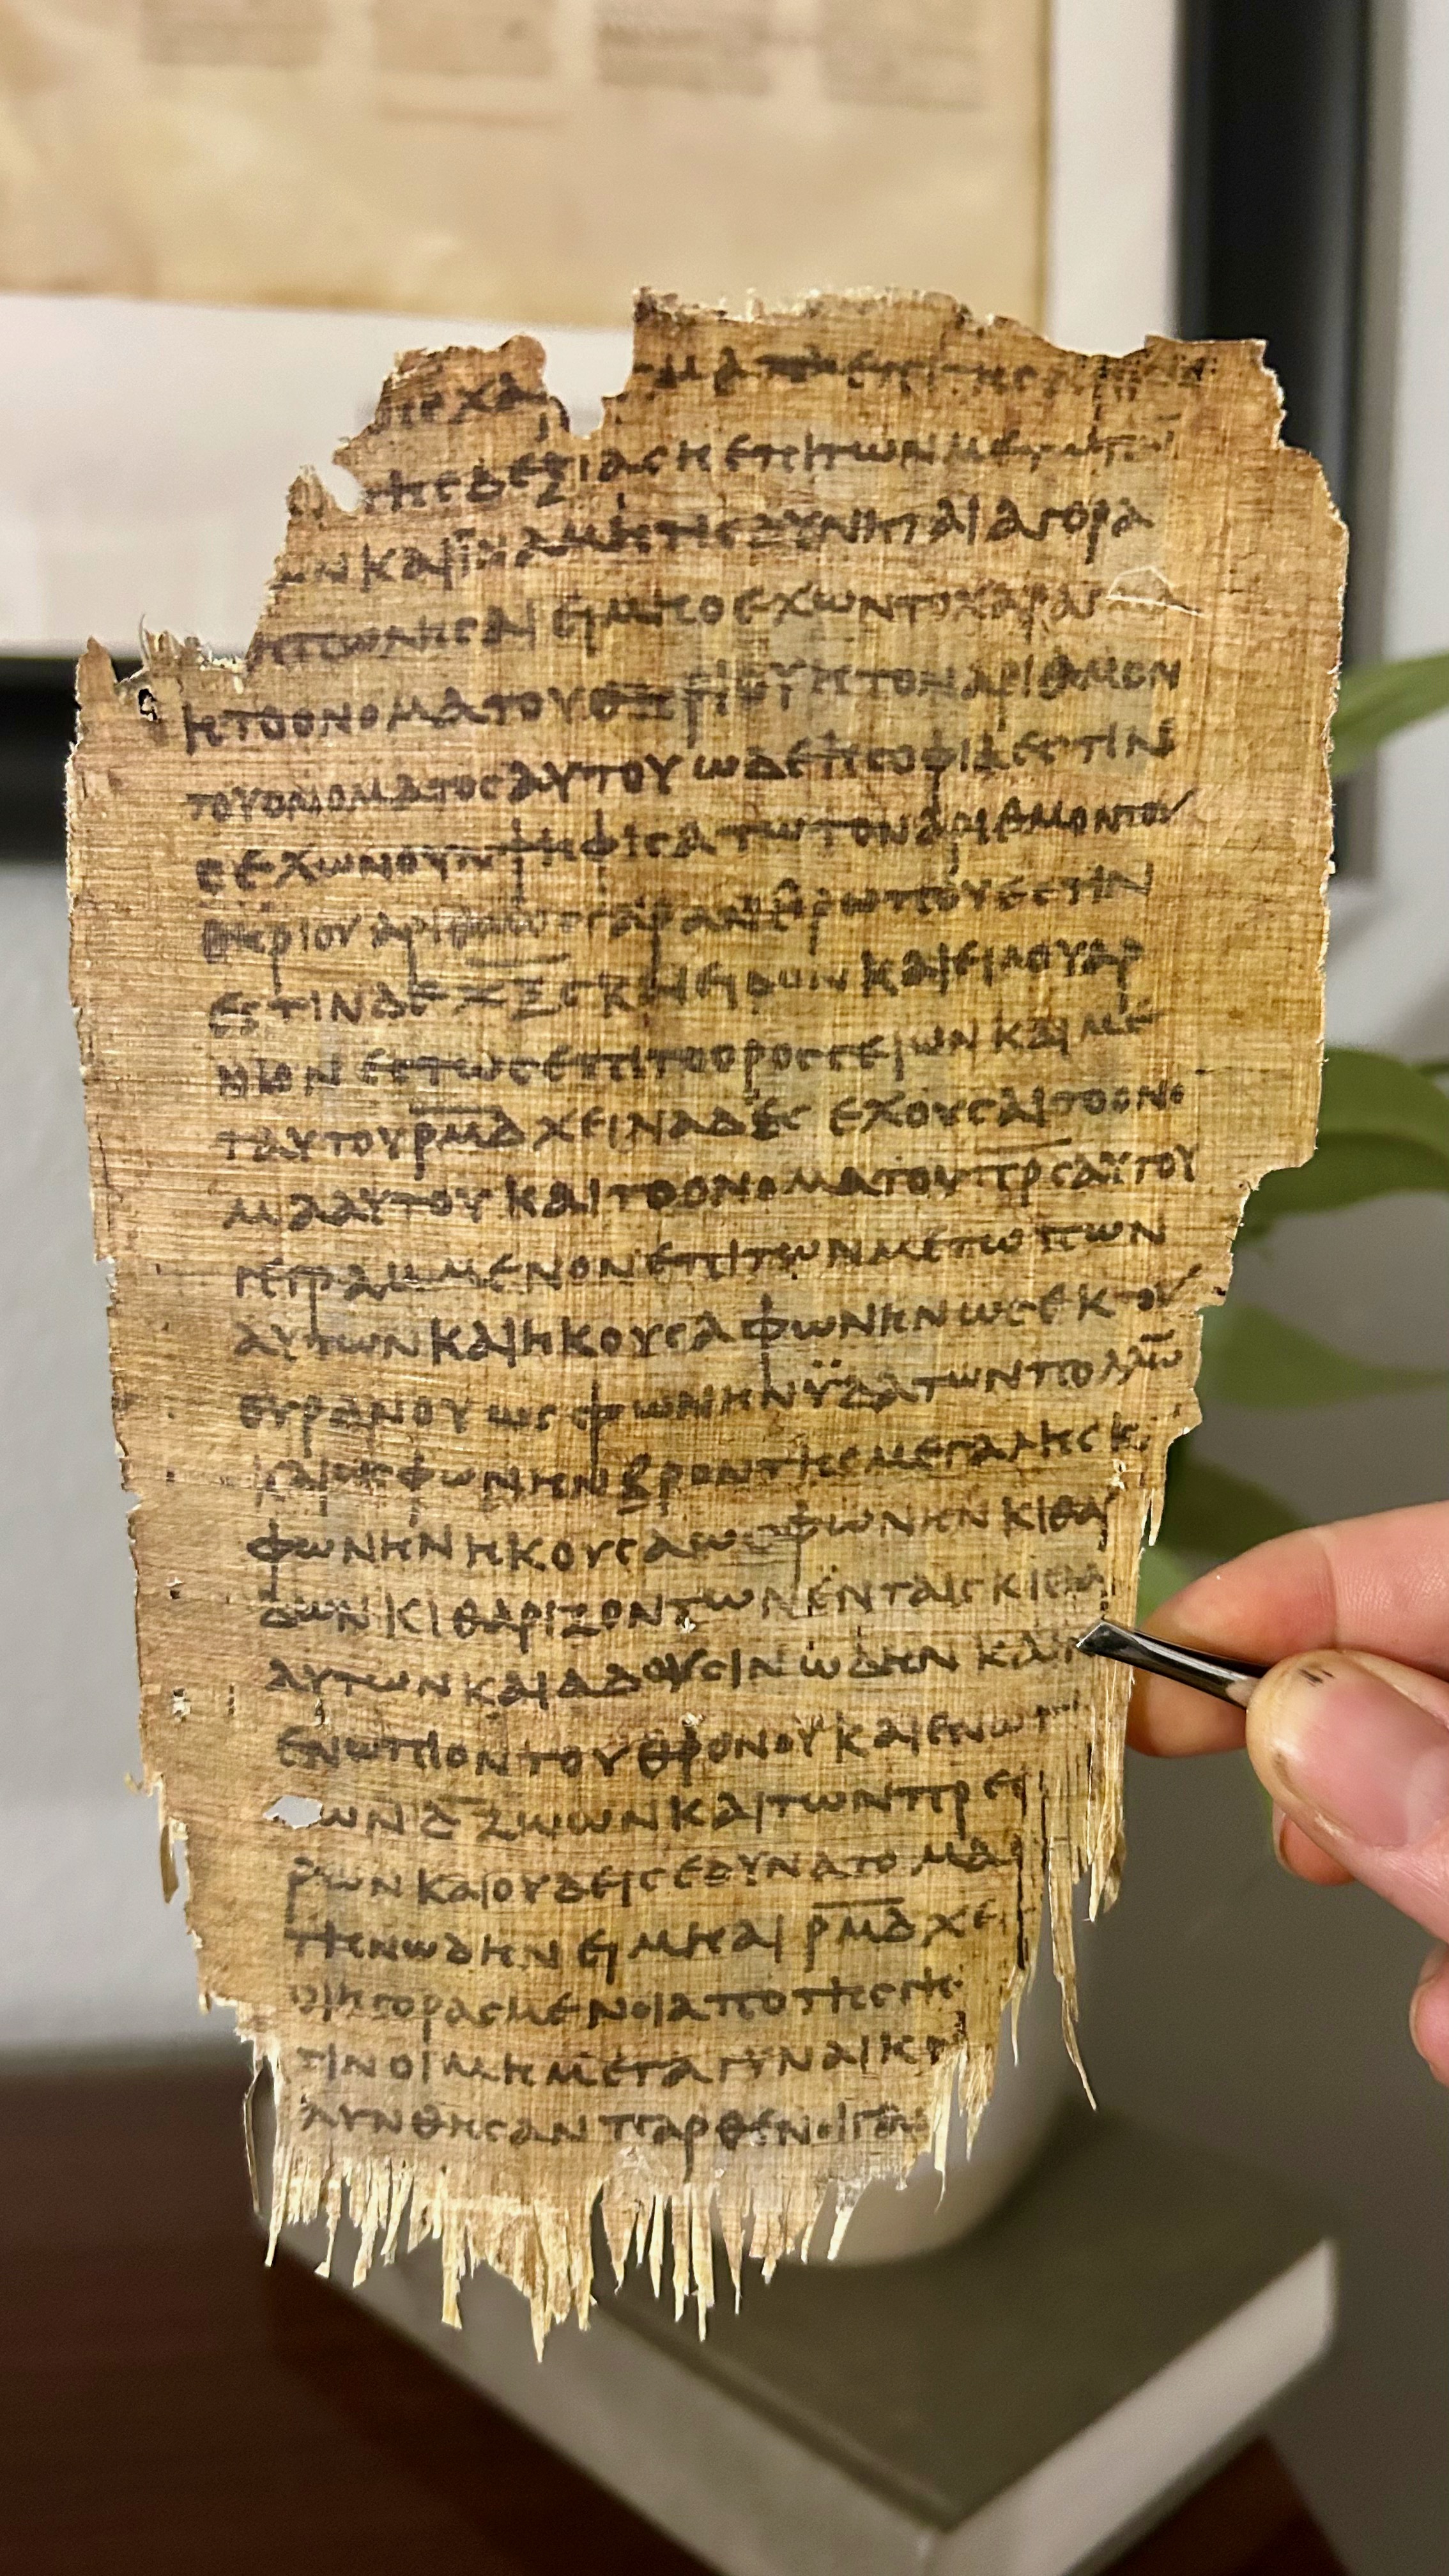 χαρ μα
της δεξιας η επι των
ων και ϊνα μη τις δυνηται αγορα
η πωλησαι ει μη ο εχων το χαραγ
η το ονομα του θηριου η τον αριθμον
του ονοματος αυτου ωδε η σοφια εστιν
ο εχων ουν ψηφισατω τον αριθμον του
θηριου αριθμος γαρ ανθρωπου εστιν
εστιν δε χξϛ και ειδον και ειδου αρ
νιον εστως επι το ορος σειων και με
τ αυτου ρμδ χειλιαδες εχουσαι το ονο
μα αυτου και το ονομα του πρς αυτου
γεγραμμενον επι των μετωπων
αυτων και ηκουσα φωνην ως εκ του
ουρανου ως φωνην ϋδατων πολλω̅
και ως φωνην βροντης μεγαλης κ
φωνην ηκουσα ως φωνην κιθα
δων κιθαριζοντων εν ταις κιθα
αυτων και αδουσιν ωδην και
ενωπιον του θρονου και ενωπι
ων δ ζωων και των πρε
ρων και ουδεις εδυνατο μα
την ωδην ει μη αι ρμδ χει
οι ηγορασμενοι απο της γης
τινοι μη μετα γυναικ
λυνθησαν παρθενοι γαρ